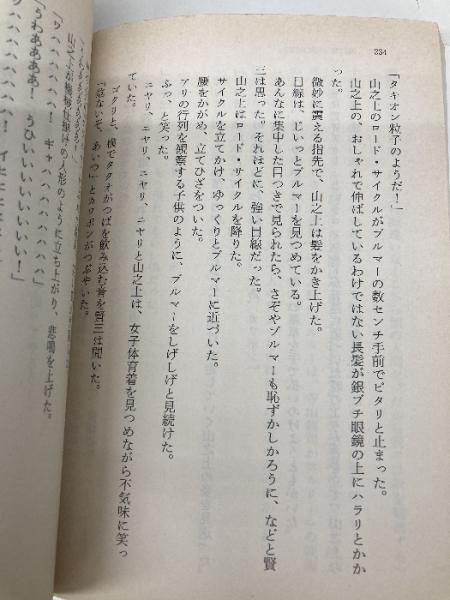 234
「タキオン粒子のようだ!」
山之上のロード・サイクルがブルマーの数センチ手前でピタリと止まった。
山之上の、おしゃれで伸ばしているわけではない長髪が銀ブチ眼鏡の上にハラリとかか
った。
微妙に震える指先で、山之上は髪をかき上げた。
目線は、じいっとブルマーを見つめている。
あんなに集中した目つきで見られたら、さぞやブルマーも恥ずかしかろうに、などと賢
三は思った。それほどに、強い目線だった。
山之上はロード・サイクルを降りた。
サイクルを立てかけ、ゆっくりとブルマーに近づいた。
腰をかがめ、立てひざをついた。
アリの行列を観察する子供のように、ブルマーをしげしげと見続けた。
ふっ、と笑った。
ニヤリ、ニヤリ、ニヤリ、ニヤリと山之上は、女子体育着を見つめながら不気味に笑っ
ていた。
ゴクリと、横でタクオがつばを飲み込む音を賢三は聞いた。
「危ないぞ、あいつ」とカワボンがつぶやいた。
山之上が機械仕掛けの人形のように立ち上がり、悲鳴を上げた。
「うわああああ! うひいいいいいいいい!」
ワハハハハハハ!